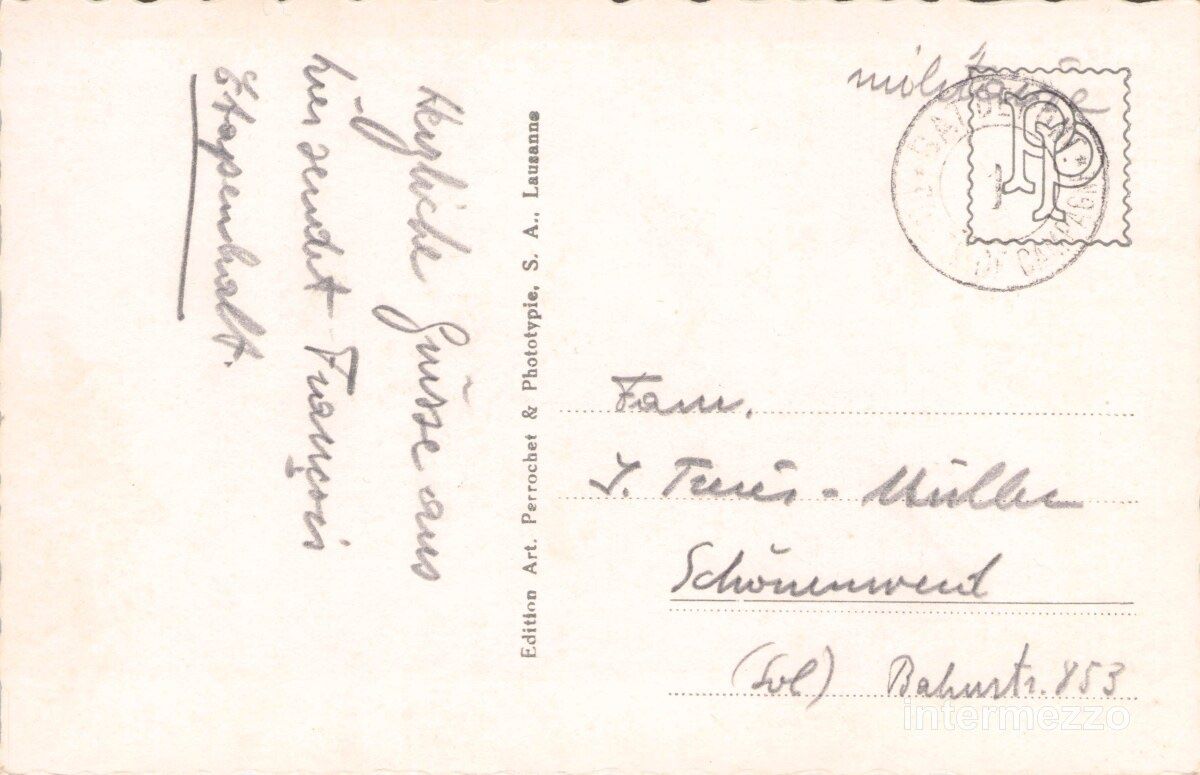 Herzliche Grüsse aus
hier sendet François
Etappenhalt.
Edition Art. Perrochet & Phototypie, S. A., Lausanne
militaire
PP
DE CAMPAGNE
Fam.
J. - Müller
Schönenwerd
(Sol) Bahnstr. 853
intermezzo